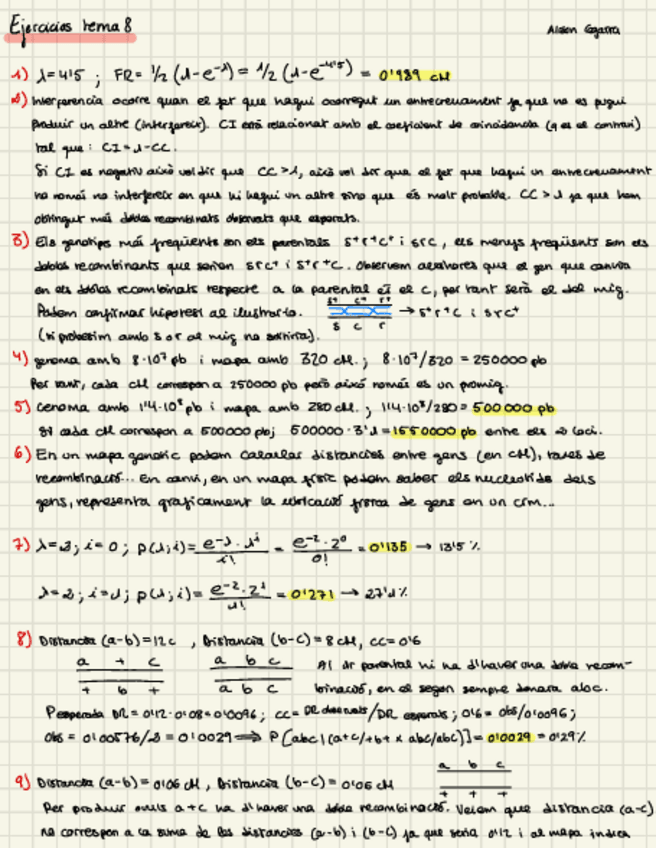 Ejercicios tema 8
1) λ=4'5 ; FR= 1/2 (1-e^-λ) = 1/2 (1-e^-4'5) = 0'989 cM
2) Interferencia ocorre quan el fet que hagui ocorregut un entrecreuament fa que no es pugui
produir un altre (interfereix). CI està relacionat amb el coeficient de coincidencia (q es el contrari)
tal que: CI=1-CC.
Si CI es negatiu això vol dir que CC>1, això vol dir que el fet que hagui un entrecreuament
no només no interfereix en que hi hagui un altre sino que és molt probable. CC>1 ja que hem
obtingut més dobles recombinats observats que esperats.
3) Els genotips més freqüents son els parentals s+r+c+ i src, els menys freqüents son els
dobles recombinants que serien src+ i s+r+c. Observem aleshores que el gen que canvia
en els dobles recombinats respecte a la parental és el c, per tant serà el del mig.
Podem confirmar hipotesi al ilustrar-lo. s+ c+ r+ → s+r+c i src+
s c r
(si probessim amb s o r al mig no sortiria).
4) genoma amb 8·10^7 pb i mapa amb 320 cM. ; 8·10^7/320 = 250000 pb
Per tant, cada cM correspon a 250000 pb però això només es un promig.
5) Genoma amb 1'4·10^8 pb i mapa amb 280 cM. ; 1'4·10^8/280 = 500 000 pb
Si cada cM correspon a 500000 pb; 500000·3'1 = 1550000 pb entre els 2 loci.
6) En un mapa genetic podem calcular distancies entre gens (en cM), taxes de
recombinació... En canvi, en un mapa físic podem saber els nucleotids dels
gens, representa graficament la ubicació física de gens en un crm...
7) λ=2; i=0; p(λ;i)= e^-λ·λ^i / i! = e^-2·2^0 / 0! = 0'135 → 13'5 %
λ=2; i=1; p(λ;i)= e^-2·2^1 / 1! = 0'271 → 27'1%
8) Distancia (a-b)=12c , Distancia (b-c)=8 cM, cc=0'6
a + c a b c Al 1r parental hi ha d'haver una doble recom-
+ b + a b c binació, en el segon sempre donara abc.
Pesperada DR = 0'12·0'08=0'0096; cc= DR observats/DR esperats ; 0'6= obs/0'0096;
Obs = 0'00576/2 = 0'0029 ⟹ P [abc|(a+c/+b+ x abc/abc)] = 0'0029 = 0'29%
a b c
9) Distancia (a-b)= 0'06 cM, Distancia (b-c)= 0'06 cM + + +
Per produir ovuls a+c ha d'haver una doble recombinació. Veiem que distancia (a-c)
no correspon a la suma de les distancies (a-b) i (b-c) ja que seria 0'12 i al mapa indica